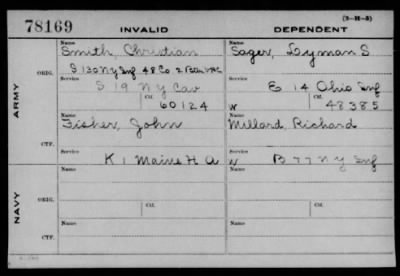 (3-16-5)
78169 INVALID DEPENDENT
Name Name
Smith, Christian Sager, Lyman S
ORIG. S 130 N Y Inf 48 Co 2 Batt VRC
Service Service
S 19 N Y Cav E 14 Ohio Inf
Ctf. Ctf.
60124 W 48385
ARMY
Name Name
Fisher, John Millard, Richard
CTF.
Service Service
K 1 Maine H A W B 77 N Y Inf
Name Name
NAVY
ORIG.
Service Service
Ctf. Ctf.
Name Name
CTF.